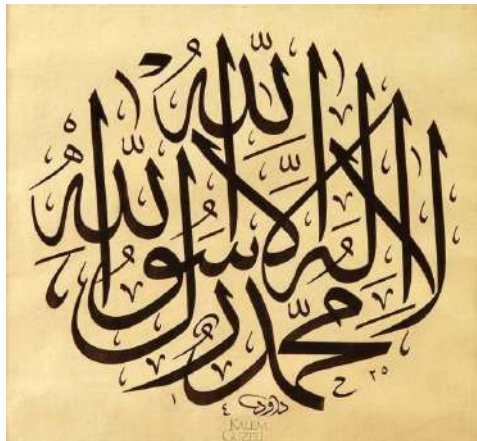 لا إله إلا الله محمد رسول الله
KALEM
GÜZELİ